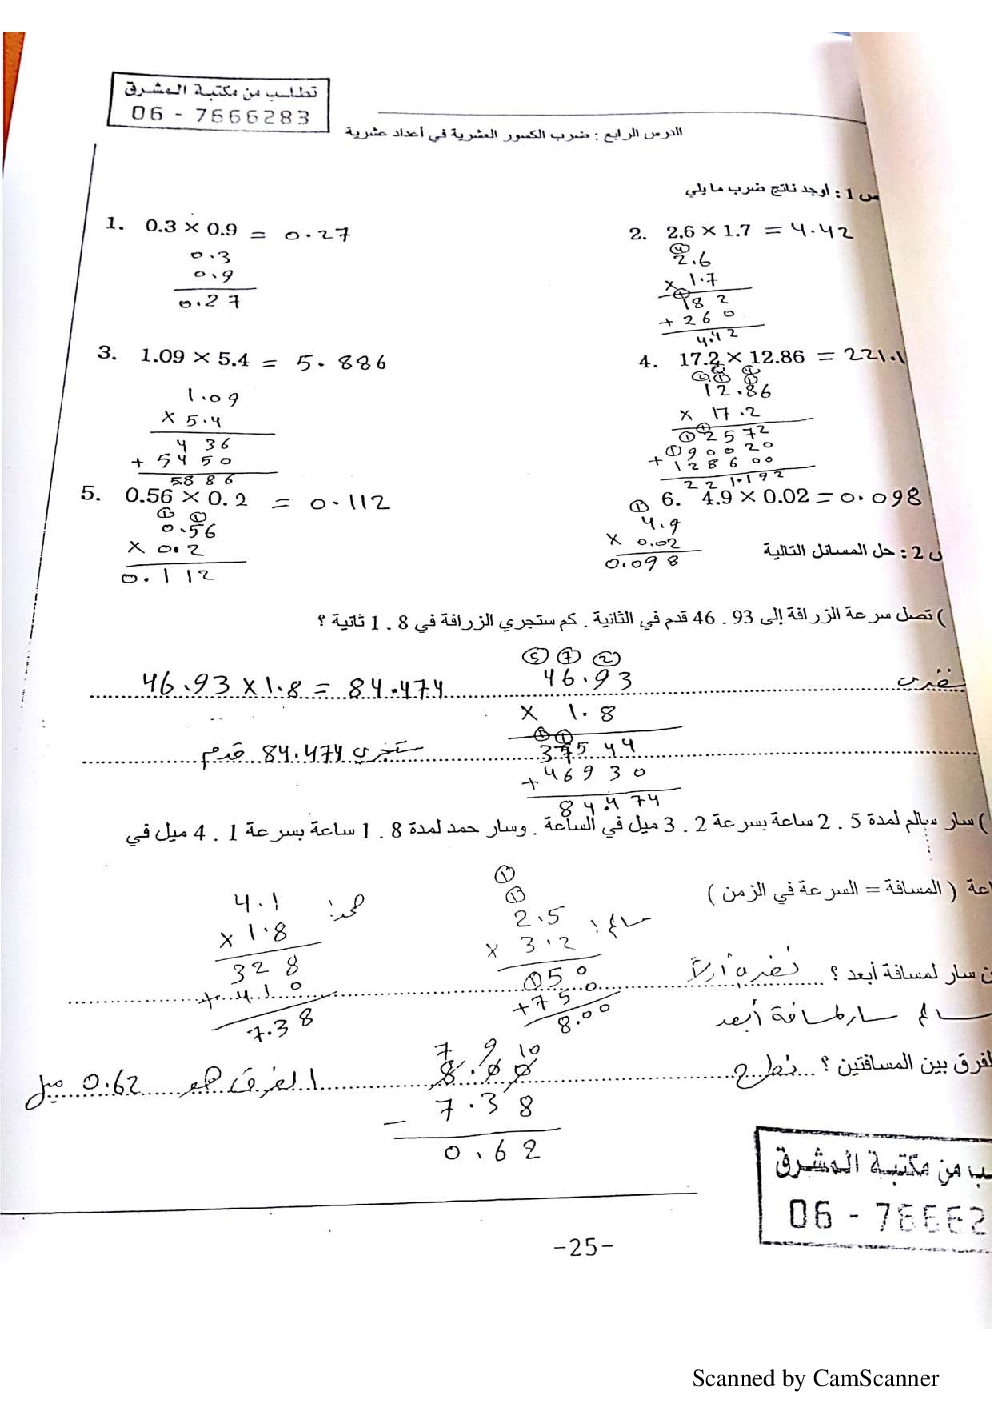 تطلب من مكتبة المشرق
06 - 7666283
الدرس الرابع : ضرب الكسور العشرية في أعداد عشرية
س 1 : أوجد ناتج ضرب ما يلي
1. 0.3 × 0.9 = 0.27
0.3
0.9
0.27
2. 2.6 × 1.7 = 4.42
4
2.6
× 1.7
182
+ 260
4.42
3. 1.09 × 5.4 = 5.886
1.09
× 5.4
436
+ 5450
5886
4. 17.2 × 12.86 = 221.1
12.86
× 17.2
2572
90020
+ 128600
221.192
5. 0.56 × 0.2 = 0.112
1 1
0.56
× 0.2
0.112
6. 4.9 × 0.02 = 0.098
1
4.9
× 0.02
0.098
س 2 : حل المسائل التالية
) تصل سرعة الزرافة إلى 93 . 46 قدم في الثانية . كم ستجري الزرافة في 8 . 1 ثانية ؟
نضرب
46.93 × 1.8 = 84.474
5 7 2
46.93
× 1.8
1 1
37544
+ 46930
84.474
ستجري 84.474 قدم
) سار سالم لمدة 5 . 2 ساعة بسرعة 2 . 3 ميل في الساعة . وسار حمد لمدة 8 . 1 ساعة بسرعة 1 . 4 ميل في
اعة ( المسافة = السرعة في الزمن )
سالم:
1
1
2.5
× 3.2
150
+ 750
8.00
حمد:
4.1
× 1.8
328
+ 410
7.38
ن سار لمسافة أبعد ؟ نضرب أولاً
سالم سار لمسافة أبعد
لفرق بين المسافتين ؟ نطرح
7 9 10
8.00
- 7.38
0.62
الفرق هو 0.62 ميل
ب من مكتبة المشرق
06 - 76662
-25-
Scanned by CamScanner